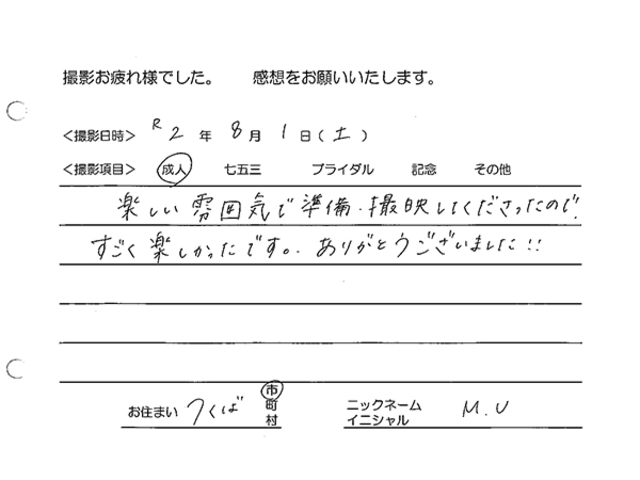 撮影お疲れ様でした。 感想をお願いいたします。
<撮影日時> R2年 8月 1日(土)
<撮影項目> 成人 七五三 ブライダル 記念 その他
楽しい雰囲気で準備・撮映してくださったので、
すごく楽しかったです。ありがとうございました!!
お住まい つくば 市 町 村 ニックネーム イニシャル M.U